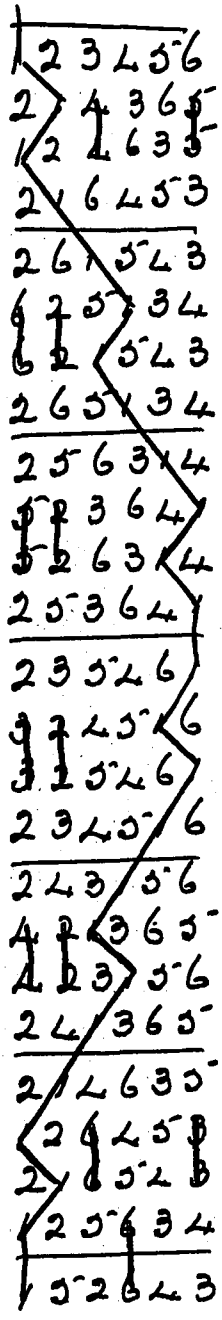 1 2 3 4 5 6
2 1 4 3 6 5
1 2 4 6 3 5
2 1 6 4 5 3
2 6 1 5 4 3
6 2 5 1 3 4
6 2 1 5 4 3
2 6 5 1 3 4
2 5 6 3 1 4
5 2 3 6 4 1
5 2 6 3 1 4
2 5 3 6 4 1
2 3 5 4 6 1
3 2 4 5 1 6
3 2 5 4 6 1
2 3 4 5 1 6
2 4 3 1 5 6
4 2 1 3 6 5
4 2 3 1 5 6
2 4 1 3 6 5
2 1 4 6 3 5
1 2 6 4 5 3
2 1 6 5 4 3
1 2 5 6 3 4
1 5 2 6 4 3